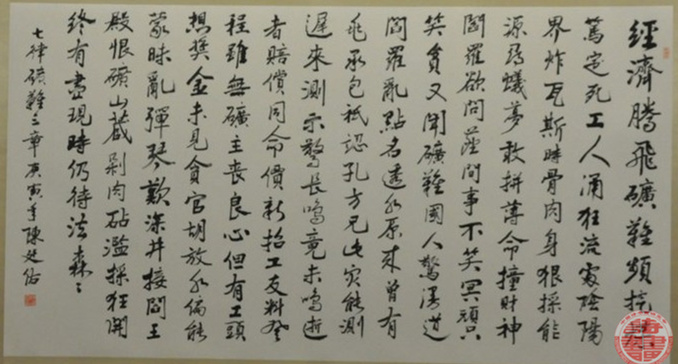 經濟騰飛礦難頻挖煤
篤定死工人涌狂流處陰陽
界炸瓦斯時骨肉身狠採能
源尋蟻夢敢拼薄命撞財神
閻羅欲問間事不笑冥頑只
笑貧又聞礦難國人驚漫道
閻羅亂點名透水原來曾有
兆承包祇認孔方兄此灾能測
遲來測示警長鳴竟未鳴逝
者賠償同命價新招工友料登
程雖無礦主喪良心但有工頭
想獎金未見貪官胡放水偏能
蒙昧亂彈琴歎深井接閻王
殿恨礦山藏剝肉砧濫採狂開
終有盡現時仍待法森〻
七律礦難三章庚寅年陳廷佑